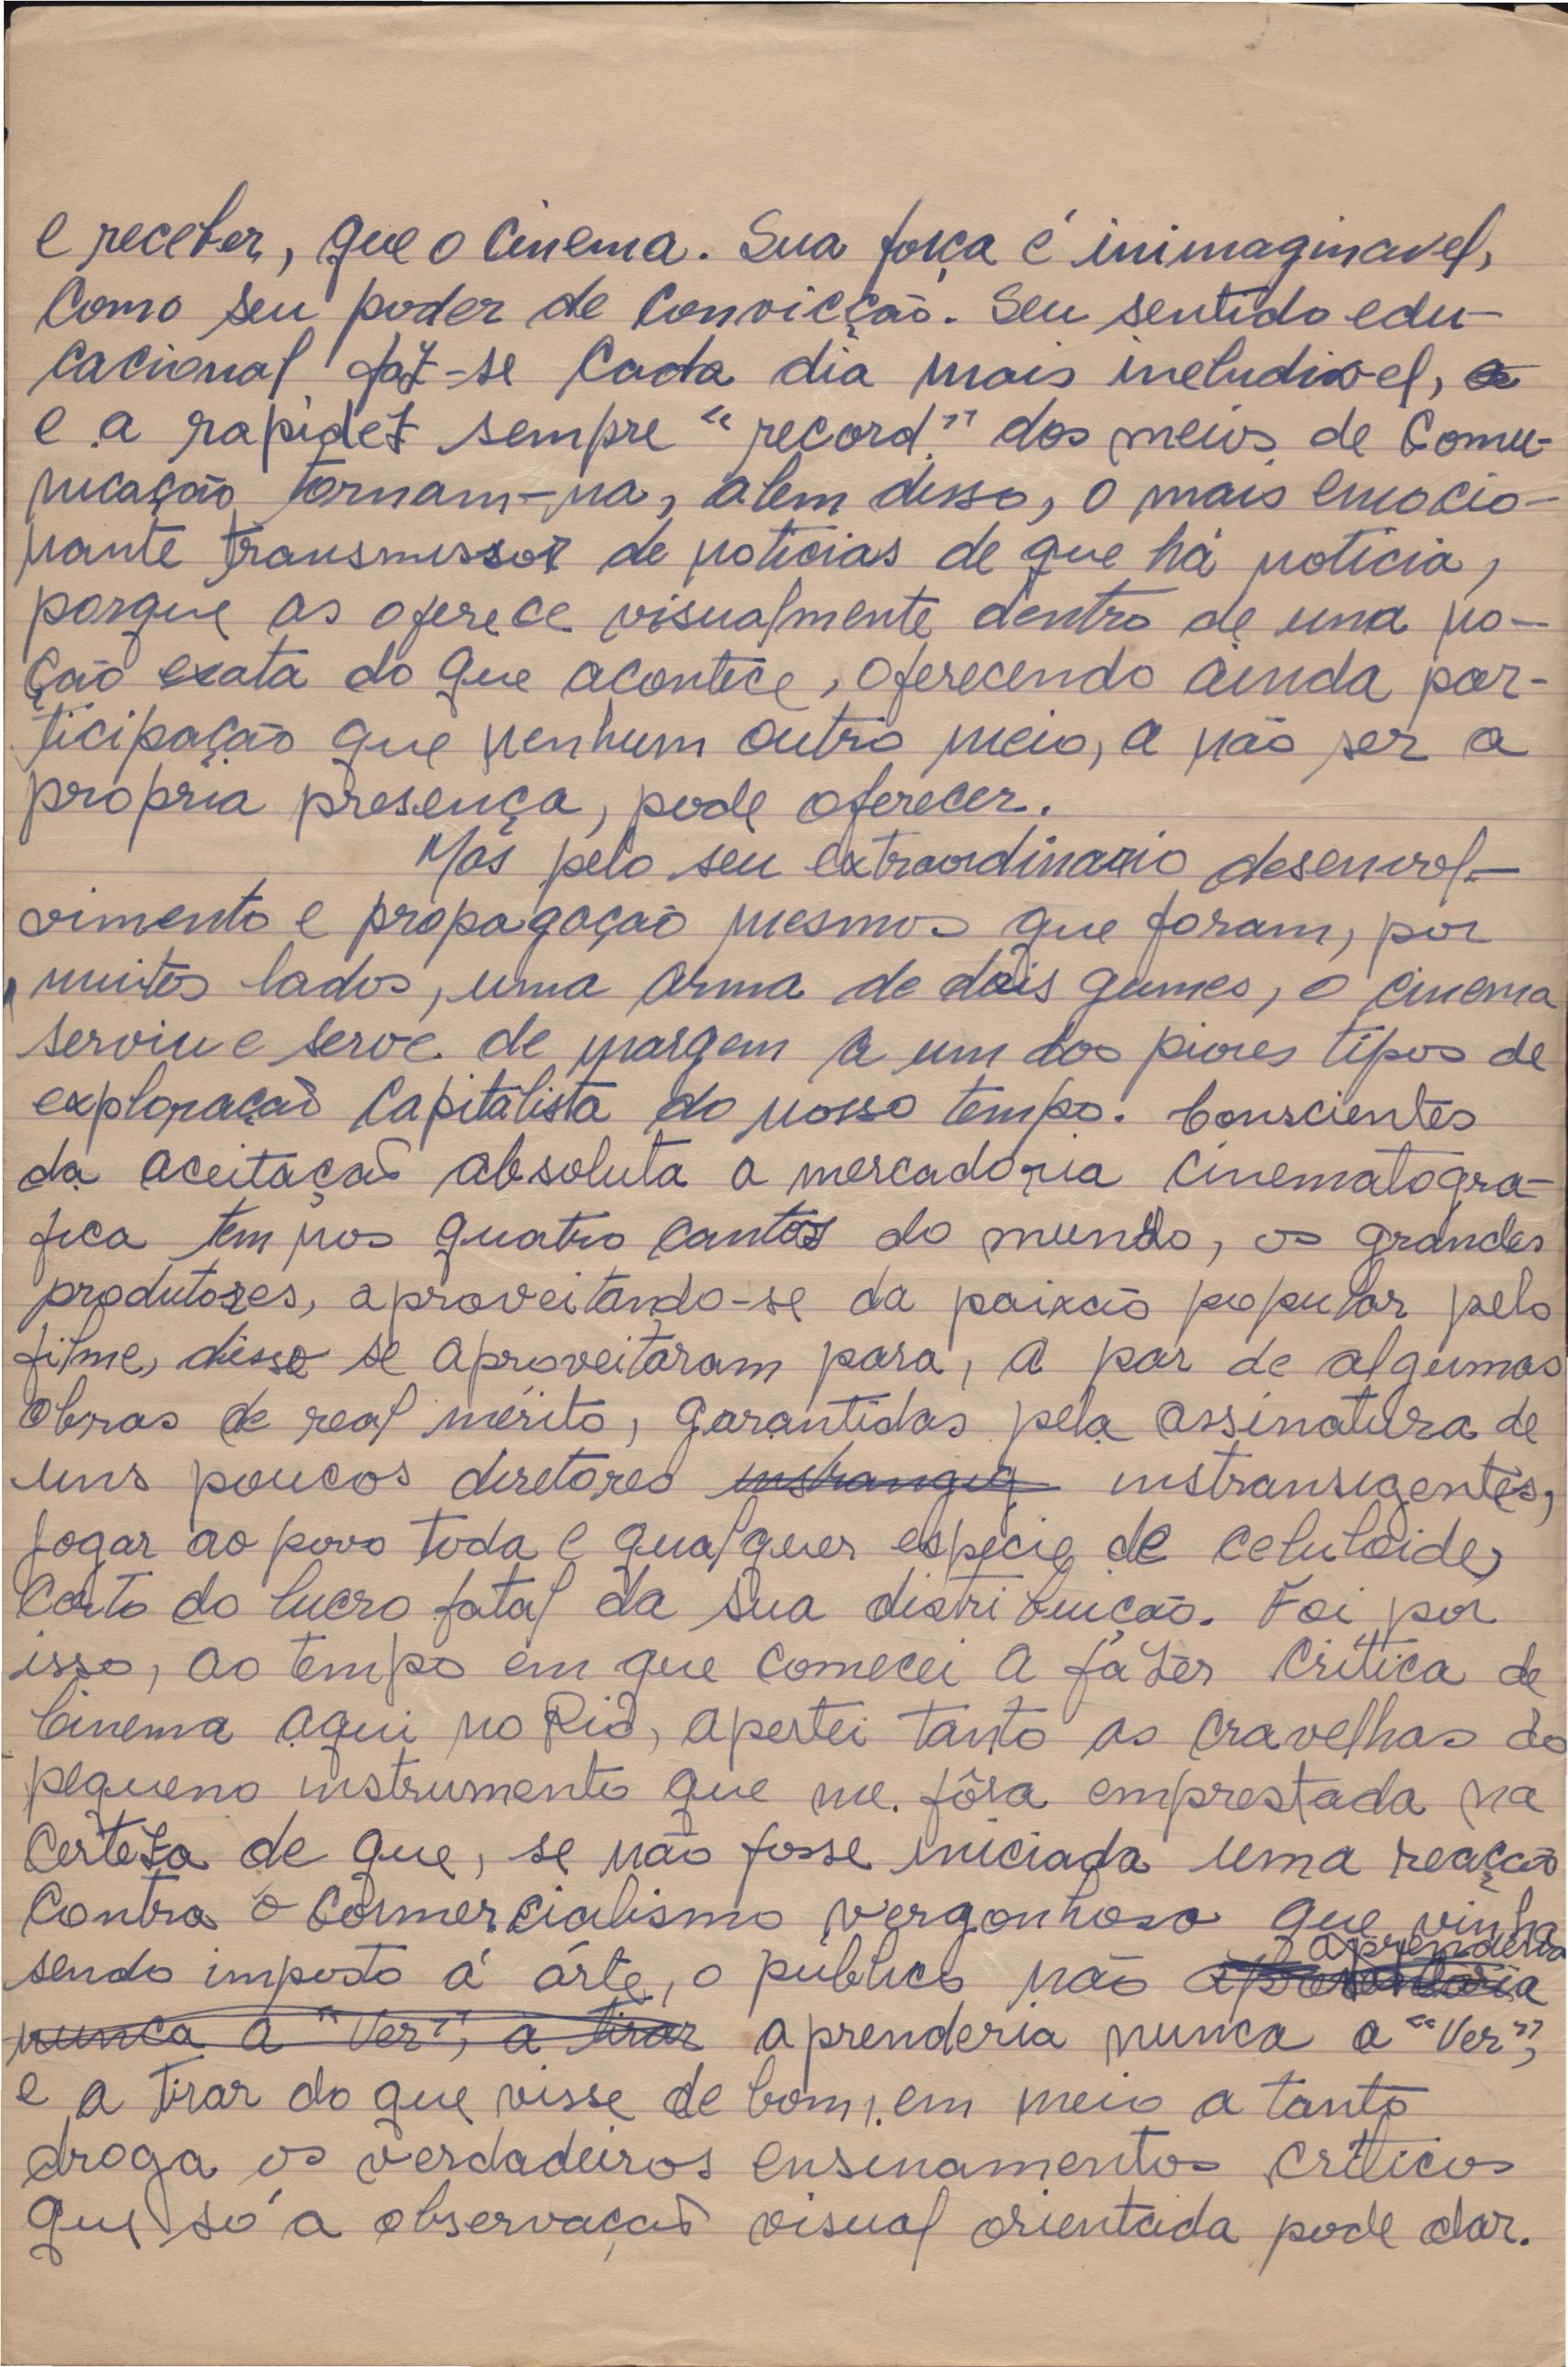 e receber, que o cinema. Sua força é inimaginavel,
como seu poder de convicção. Seu sentido edu-
cacional faz-se cada dia mais ineludivel, a
e a rapidez sempre "record" dos meios de comu-
nicação tornam-na, alem disso, o mais emocio-
nante transmissor de noticias de que há noticia,
porque as oferece visualmente dentro de uma no-
ção exata do que acontece, oferecendo ainda par-
ticipação que nenhum outro meio, a não ser a
propria presença, pode oferecer.
Mas pelo seu extraordinario desenvol-
vimento e propagação mesmos que foram, por
muitos lados, uma arma de dois gumes, o cinema
serviu e serve de margem a um dos piores tipos de
exploração capitalista do nosso tempo. Conscientes
da aceitação absoluta a mercadoria cinematogra-
fica tem nos quatro cantos do mundo, os grandes
produtores, aproveitando-se da paixão popular pelo
filme, disso se aproveitaram para, a par de algumas
obras de real mérito, garantidas pela assinatura de
uns poucos diretores instransigentes,
jogar ao povo toda e qualquer espécie de celuloide,
certo do lucro fatal da sua distribuição. Foi por
isso, ao tempo em que comecei a fazer critica de
cinema aqui no Rio, apertei tanto as cravelhas do
pequeno instrumento que me fôra emprestada na
certeza de que, se não fosse iniciada uma reação
contra o comercialismo vergonhoso que vinha
sendo imposto á arte, o público não aprenderia
nunca a "Ver", a tirar aprenderia nunca a "Ver",
e a tirar do que visse de bom, em meio a tanto
droga os verdadeiros ensinamentos criticos
que só a observação visual orientada pode dar.